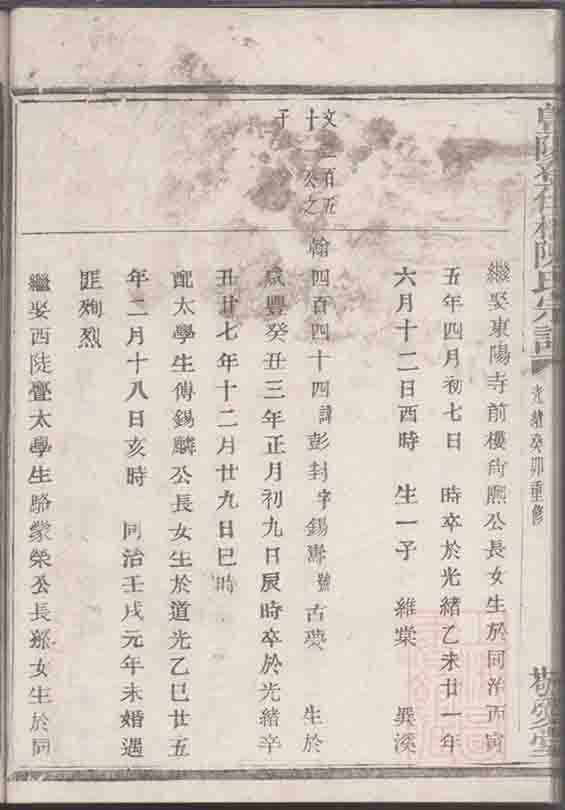 陳氏宗譜
光緒癸卯重修
敬愛堂
繼娶東陽寺前樓 公長女生於同治丙寅
五年四月初七日 時卒於光緒乙未廿一年
六月十二日酉時 生一子 維棠 巽溪
文 百五
十 公之
子
翰四百四十四諱彭封字錫壽號古夢 生於
咸豐癸丑三年正月初九日辰時卒於光緒辛
丑廿七年十二月廿九日巳時
配太學生傅錫麟公長女生於道光乙巳廿五
年二月十八日亥時 同治壬戌元年未婚遇
匪殉烈
繼娶西陡亹太學生駱蒙榮公長孫女生於同